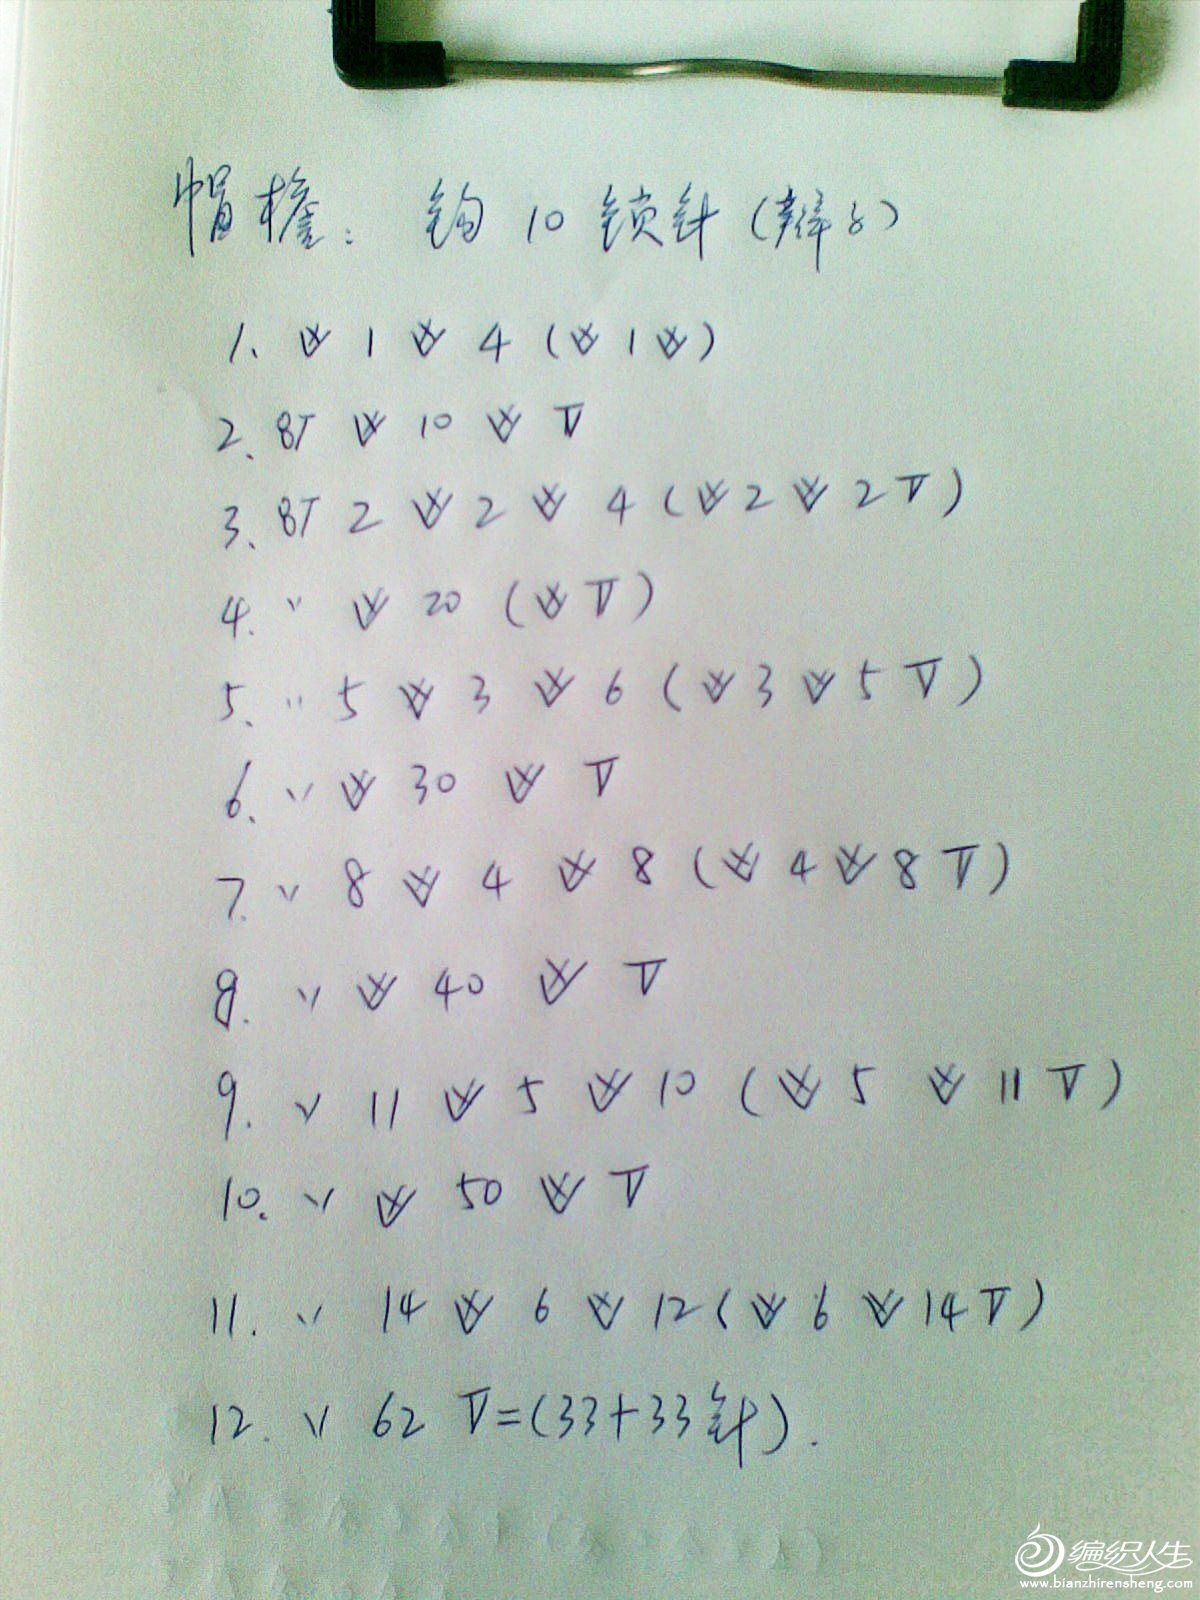 帽檐: 钩 10 锁针(辫子)
1. ⩔ 1 ⩔ 4 (⩔ 1 ⩔)
2. 8T ⩔ 10 ⩔ T
3. 8T 2 ⩔ 2 ⩔ 4 (⩔ 2 ⩔ 2 T)
4. 〃 ⩔ 20 (⩔ T)
5. 〃 5 ⩔ 3 ⩔ 6 (⩔ 3 ⩔ 5 T)
6. 〃 ⩔ 30 ⩔ T
7. 〃 8 ⩔ 4 ⩔ 8 (⩔ 4 ⩔ 8 T)
8. 〃 ⩔ 40 ⩔ T
9. 〃 11 ⩔ 5 ⩔ 10 (⩔ 5 ⩔ 11 T)
10. 〃 ⩔ 50 ⩔ T
11. 〃 14 ⩔ 6 ⩔ 12 (⩔ 6 ⩔ 14 T)
12. 〃 62 T=(33+33针).
编织人生
www.bianzhirensheng.com